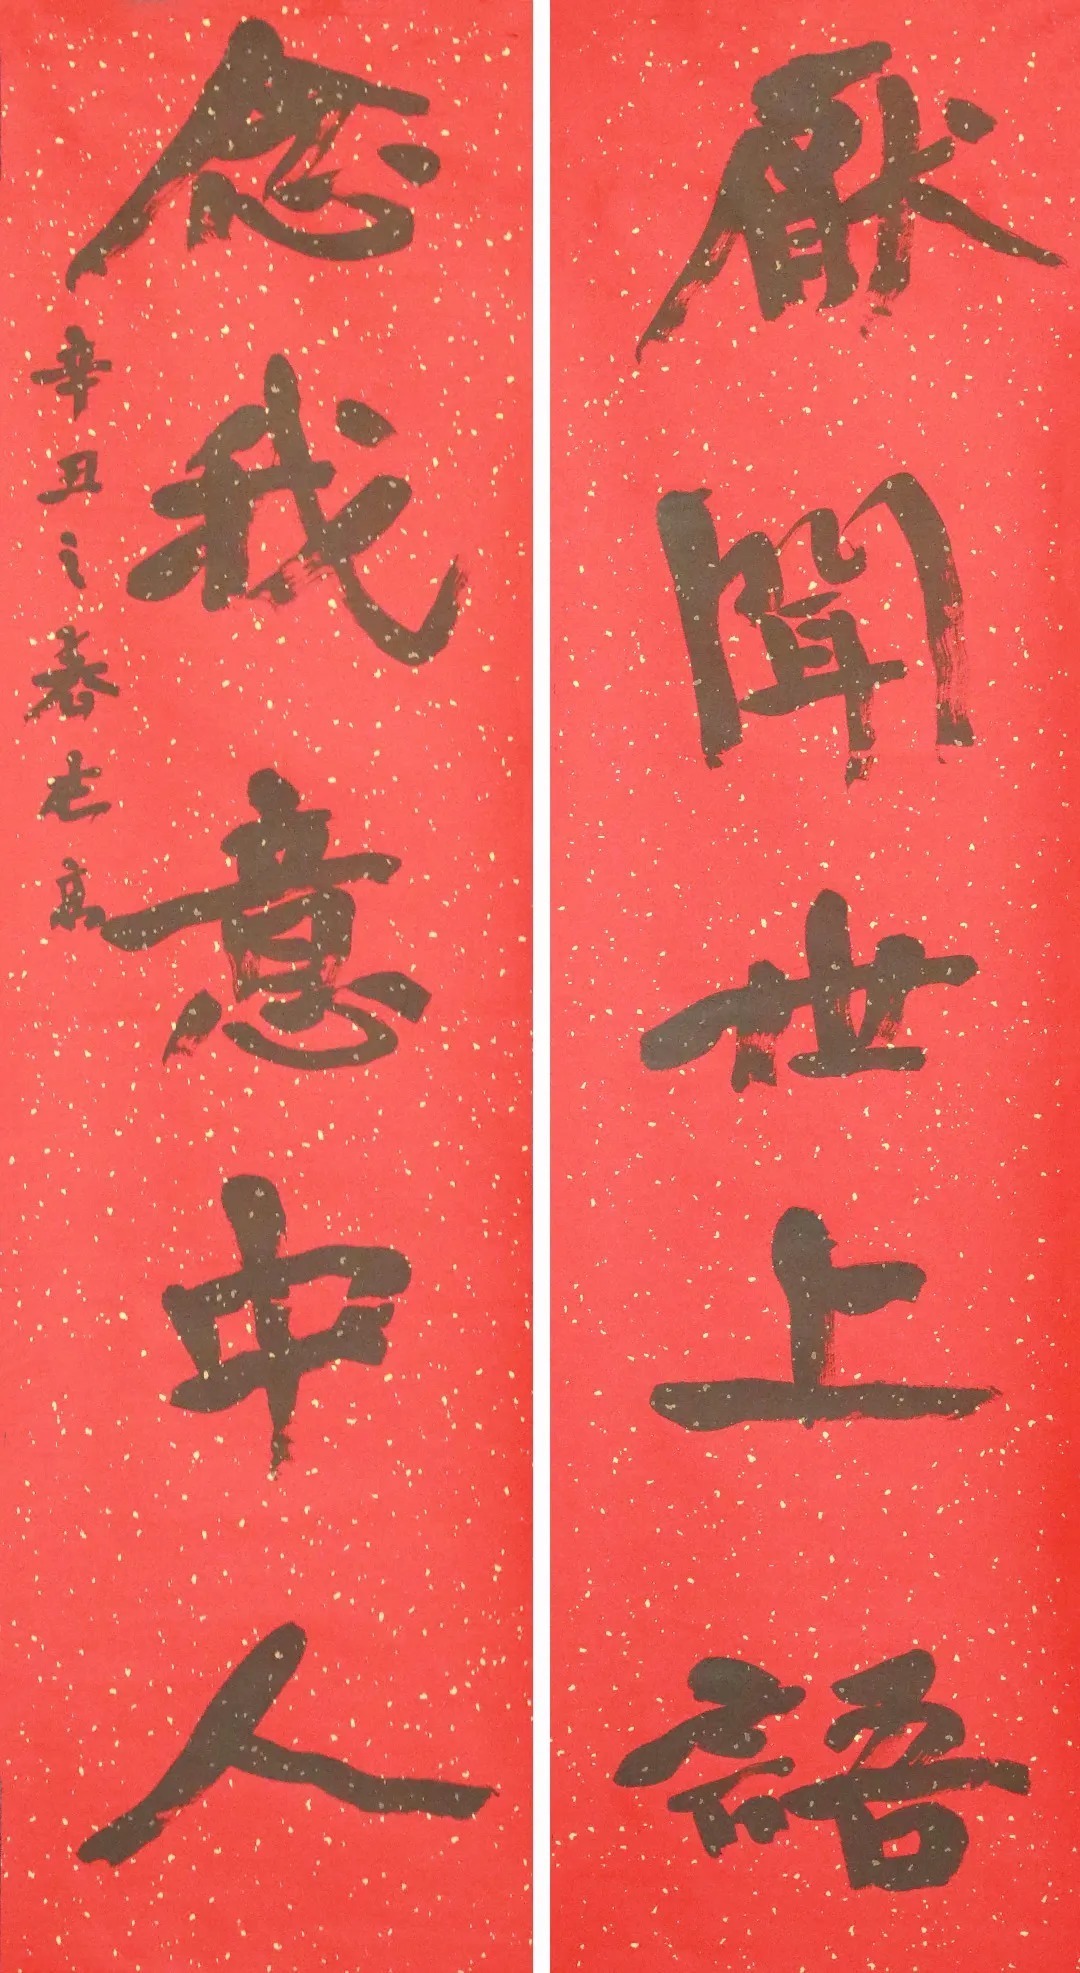 厭聞世上語
念我意中人
辛丑之春